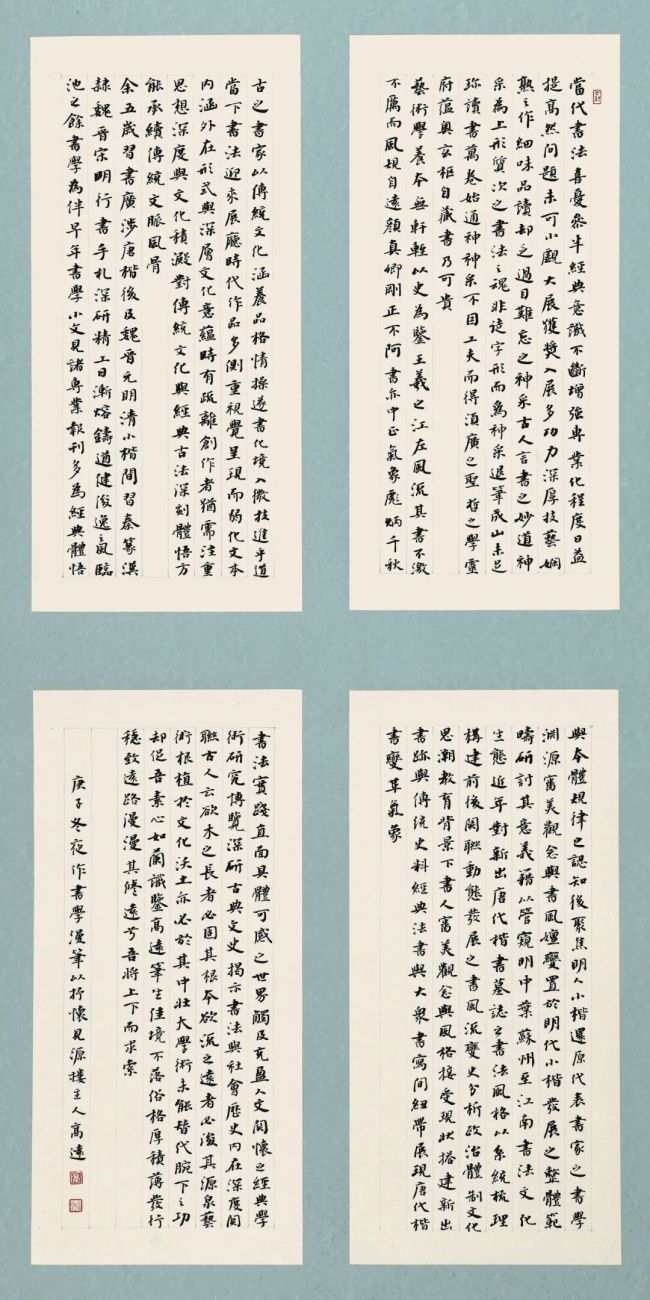 當代書法喜憂參半經典意識不斷增強專業化程度日益
提高然問題未可小覷大展獲獎入展多功力深厚技藝嫻
熟之作細味品讀却乏過目難忘之神采古人言書之妙道神
采為上形質次之書法之魂非徒字形而為神采退筆成山未足
珎讀書萬卷始通神神采不因工夫而得須廣之聖哲之學靈
府蘊奥玄柜自藏書乃可貴
藝術學養本無軒輊以史為鑒王羲之江左風流其書不激
不厲而風規自遠顏真卿剛正不阿書亦中正氣象彪炳千秋
古之書家以傳統文化涵養品格情操遂書化境入微技進乎道
當下書法迎來展廳時代作品多側重視覺呈現而弱化文本
内涵外在形式與深層文化意蘊時有疏離創作者猶需注重
思想深度與文化積澱對傳統文化與經典古法深刻體悟方
能承續傳統文脈風骨
余五歲習書廣涉唐楷後及魏晉元明清小楷間習秦篆漢
隸魏晉宋明行書手札深研精工日漸熔鑄遒健俊逸之風臨
池之餘書學為伴早年書學小文見諸專業報刊多為經典體悟
與本體規律之認知後聚焦明人小楷還原代表書家之書學
淵源審美觀念與書風嬗變置於明代小楷發展之整體範
疇研討其意義藉以管窺明中葉蘇州至江南書法文化
生態近年對新出唐代楷書墓誌之書法風格以系統梳理
構建前後関聯動態發展之書風流變史分析政治體制文化
思潮教育背景下書人審美觀念與風格接受現狀搭建新出
書跡與傳統史料經典法書與大衆書寫間紐帶展現唐代楷
書變革氣象
書法實踐直面具體可感之世界觸及充盈人文関懷之經典學
術研究博覽深研古典文史揭示書法與社會歷史内在深度関
聯古人云欲木之長者必固其根本欲流之遠者必浚其源泉藝
術根植於文化沃土亦必於其中壯大學術未能替代腕下之功
却促吾素心如蘭識鑒高遠筆生佳境不落俗格厚積薄發行
穩致遠路漫漫其修遠兮吾將上下而求索
庚子冬夜作書學漫筆以抒懷見源樓主人高遠